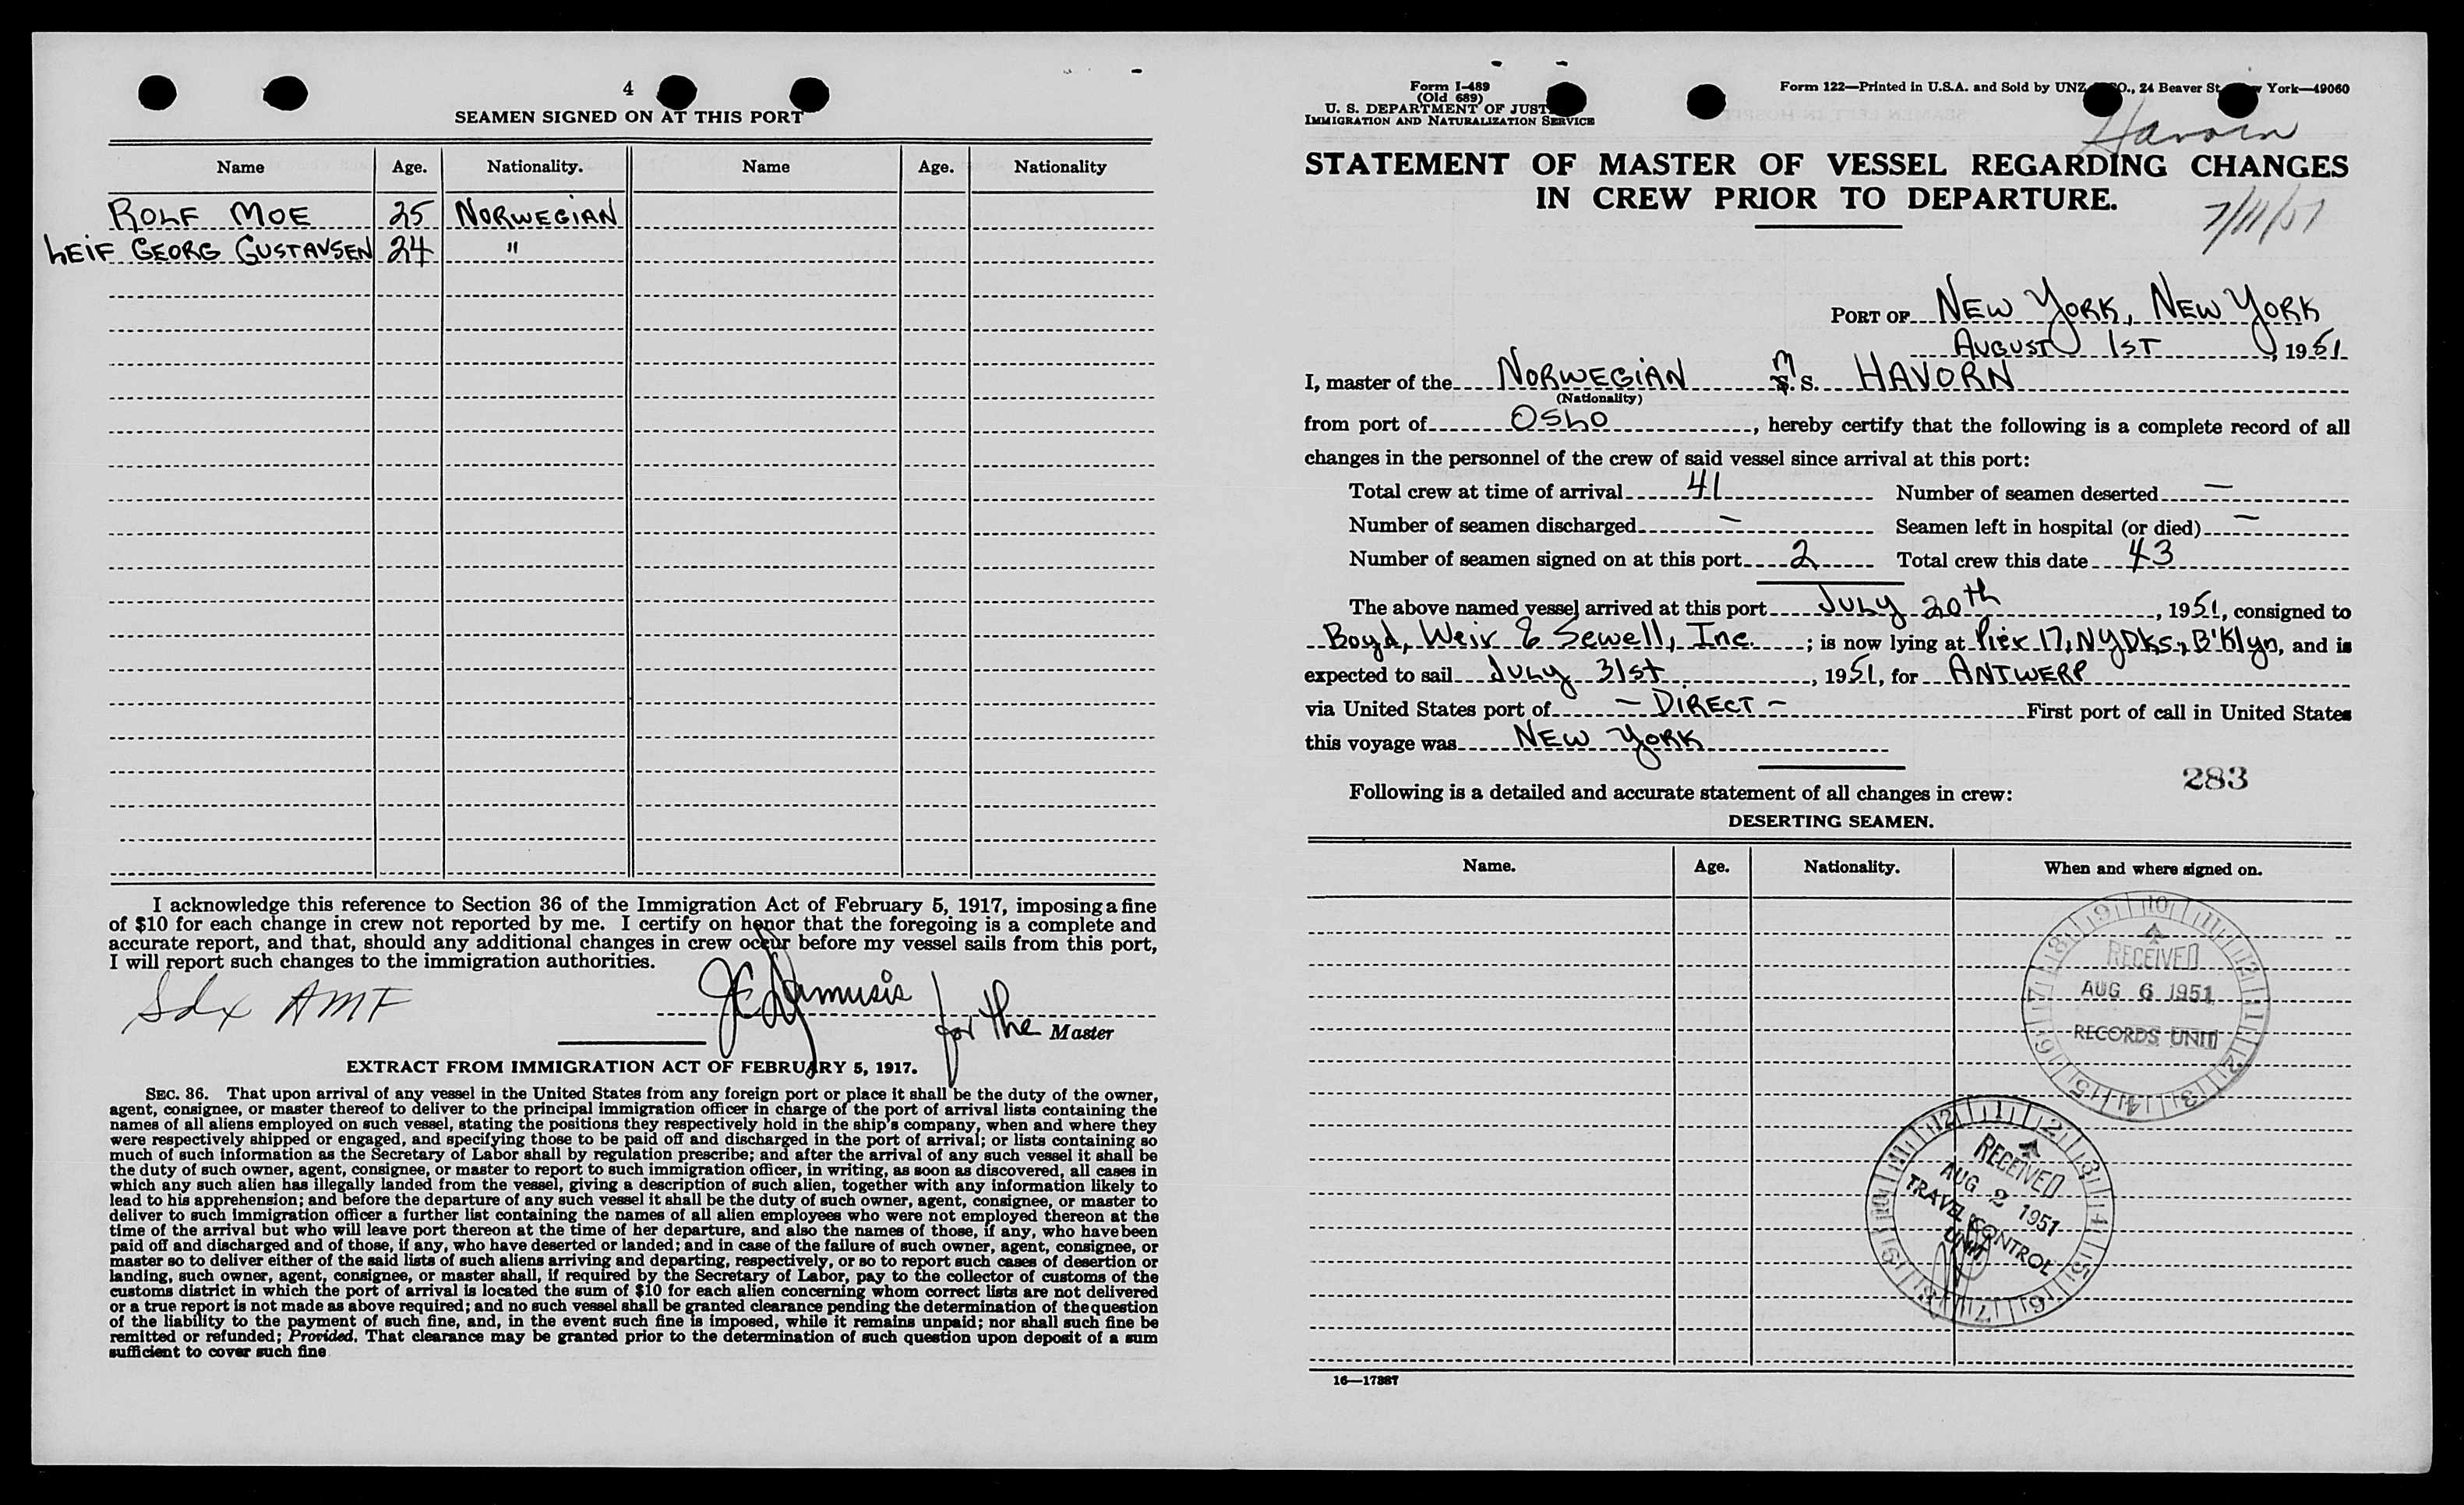 4
SEAMEN SIGNED ON AT THIS PORT
Name Age. Nationality. Name Age. Nationality
ROLF MOE 25 NORWEGIAN
LEIF GEORG GUSTAVSEN 24 "
I acknowledge this reference to Section 36 of the Immigration Act of February 5, 1917, imposing a fine
of $10 for each change in crew not reported by me. I certify on honor that the foregoing is a complete and
accurate report, and that, should any additional changes in crew occur before my vessel sails from this port,
I will report such changes to the immigration authorities.
AMF
for the Master
EXTRACT FROM IMMIGRATION ACT OF FEBRUARY 5, 1917.
SEC. 36. That upon arrival of any vessel in the United States from any foreign port or place it shall be the duty of the owner,
agent, consignee, or master thereof to deliver to the principal immigration officer in charge of the port of arrival lists containing the
names of all aliens employed on such vessel, stating the positions they respectively hold in the ship's company, when and where they
were respectively shipped or engaged, and specifying those to be paid off and discharged in the port of arrival; or lists containing so
much of such information as the Secretary of Labor shall by regulation prescribe; and after the arrival of any such vessel it shall be
the duty of such owner, agent, consignee, or master to report to such immigration officer, in writing, as soon as discovered, all cases in
which any such alien has illegally landed from the vessel, giving a description of such alien, together with any information likely to
lead to his apprehension; and before the departure of any such vessel it shall be the duty of such owner, agent, consignee, or master to
deliver to such immigration officer a further list containing the names of all alien employees who were not employed thereon at the
time of the arrival but who will leave port thereon at the time of her departure, and also the names of those, if any, who have been
paid off and discharged and of those, if any, who have deserted or landed; and in case of the failure of such owner, agent, consignee, or
master so to deliver either of the said lists of such aliens arriving and departing, respectively, or so to report such cases of desertion or
landing, such owner, agent, consignee, or master shall, if required by the Secretary of Labor, pay to the collector of customs of the
customs district in which the port of arrival is located the sum of $10 for each alien concerning whom correct lists are not delivered
or a true report is not made as above required; and no such vessel shall be granted clearance pending the determination of the question
of the liability to the payment of such fine, and, in the event such fine is imposed, while it remains unpaid; nor shall such fine be
remitted or refunded; Provided, That clearance may be granted prior to the determination of such question upon deposit of a sum
sufficient to cover such fine
Form I-489
(Old 689)
U. S. DEPARTMENT OF JUST
IMMIGRATION AND NATURALIZATION SERVICE
Form 122—Printed in U.S.A. and Sold by UNZ CO., 24 Beaver St York—49060
Havorn
STATEMENT OF MASTER OF VESSEL REGARDING CHANGES
IN CREW PRIOR TO DEPARTURE.
PORT OF NEW YORK, NEW YORK
AUGUST 1ST, 1951
I, master of the NORWEGIAN M. S. HAVORN
(Nationality)
from port of OSLO, hereby certify that the following is a complete record of all
changes in the personnel of the crew of said vessel since arrival at this port:
Total crew at time of arrival 41 Number of seamen deserted —
Number of seamen discharged — Seamen left in hospital (or died) —
Number of seamen signed on at this port 2 Total crew this date 43
The above named vessel arrived at this port JULY 20th, 1951, consigned to
Boyd, Weir & Sewell, Inc.; is now lying at Pier 17, NYDKs, B'Klyn, and is
expected to sail JULY 31st, 1951, for ANTWERP
via United States port of — DIRECT — First port of call in United States
this voyage was NEW YORK
283
Following is a detailed and accurate statement of all changes in crew:
DESERTING SEAMEN.
Name. Age. Nationality. When and where signed on.
RECEIVED
AUG 6 1951
RECORDS UNIT
RECEIVED
AUG 2 1951
TRAVEL CONTROL
UNIT
16—17387